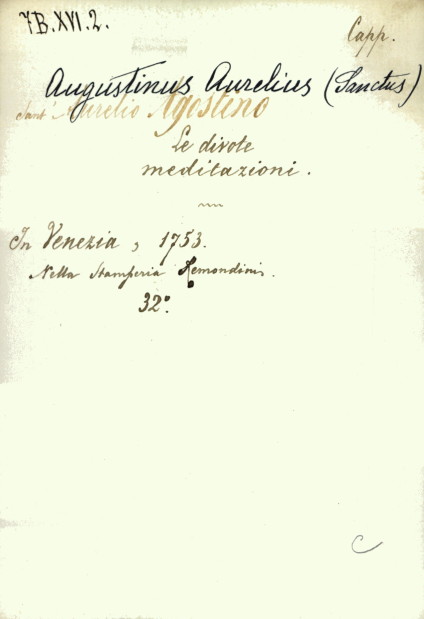 7B.XVI.2.
Capp.
Augustinus Aurelius (Sanctus)
Sant' Aurelio Agostino
Le divote
meditazioni.
In Venezia, 1753.
Nella Stamperia Remondini.
32°.
C